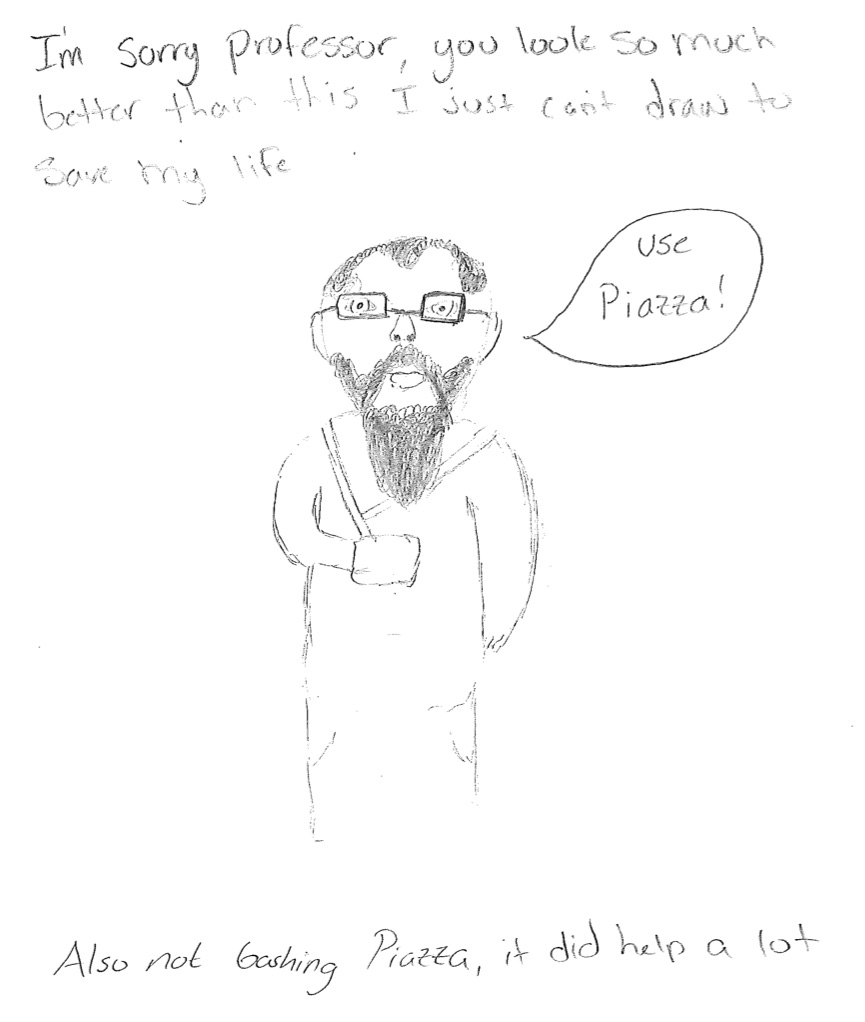 I'm sorry professor, you look so much
better than this I just can't draw to
save my life
use
Piazza!
Also not bashing Piazza, it did help a lot